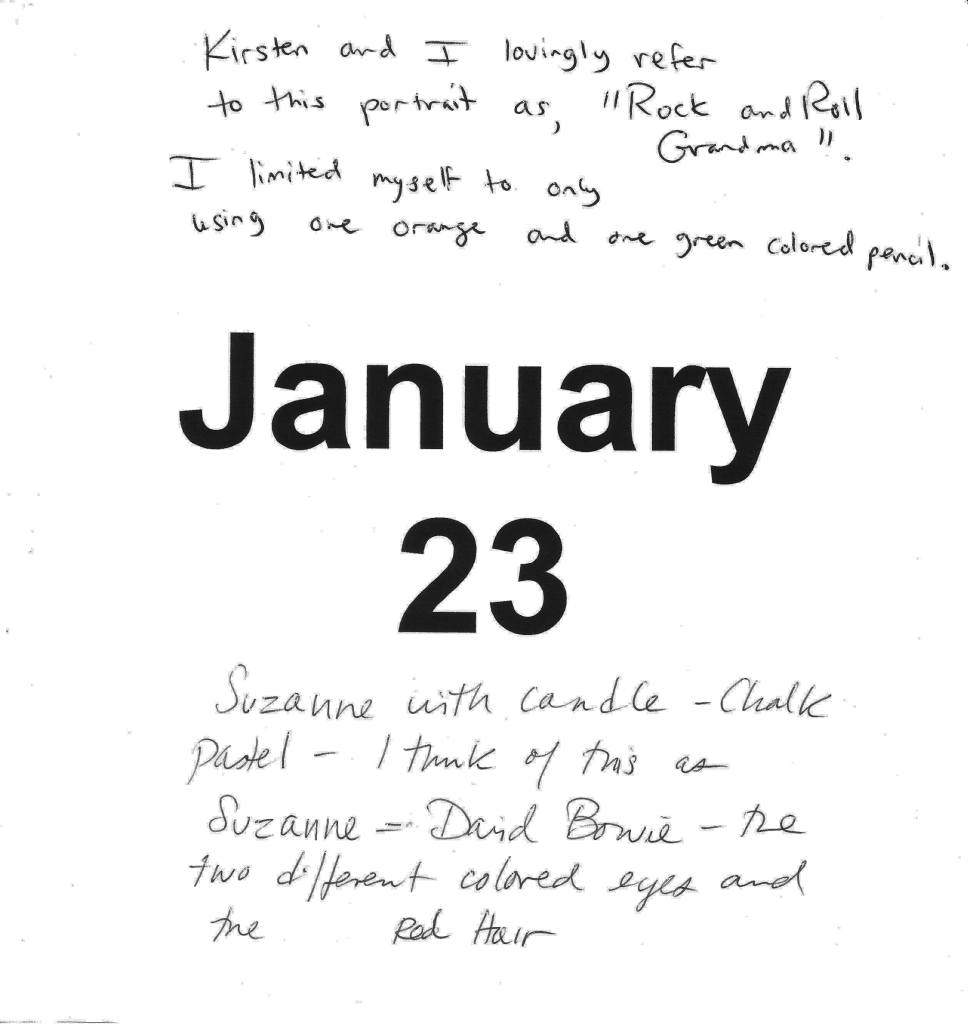 Kirsten and I lovingly refer
to this portrait as, "Rock and Roll
Grandma".
I limited myself to only
using one orange and one green colored pencil.
January
23
Suzanne with candle - Chalk
Pastel - I think of this as
Suzanne = David Bowie - the
two different colored eyes and
the Red Hair